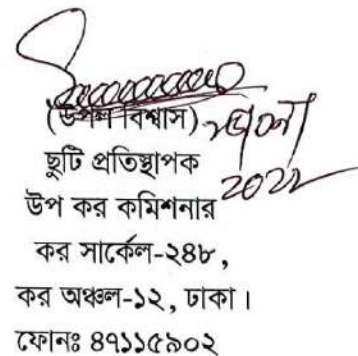 (উৎপল বিশ্বাস)
ছুটি প্রতিস্থাপক
উপ কর কমিশনার
কর সার্কেল-২৪৮,
কর অঞ্চল-১২, ঢাকা।
ফোনঃ ৪৭১১৫৯০২